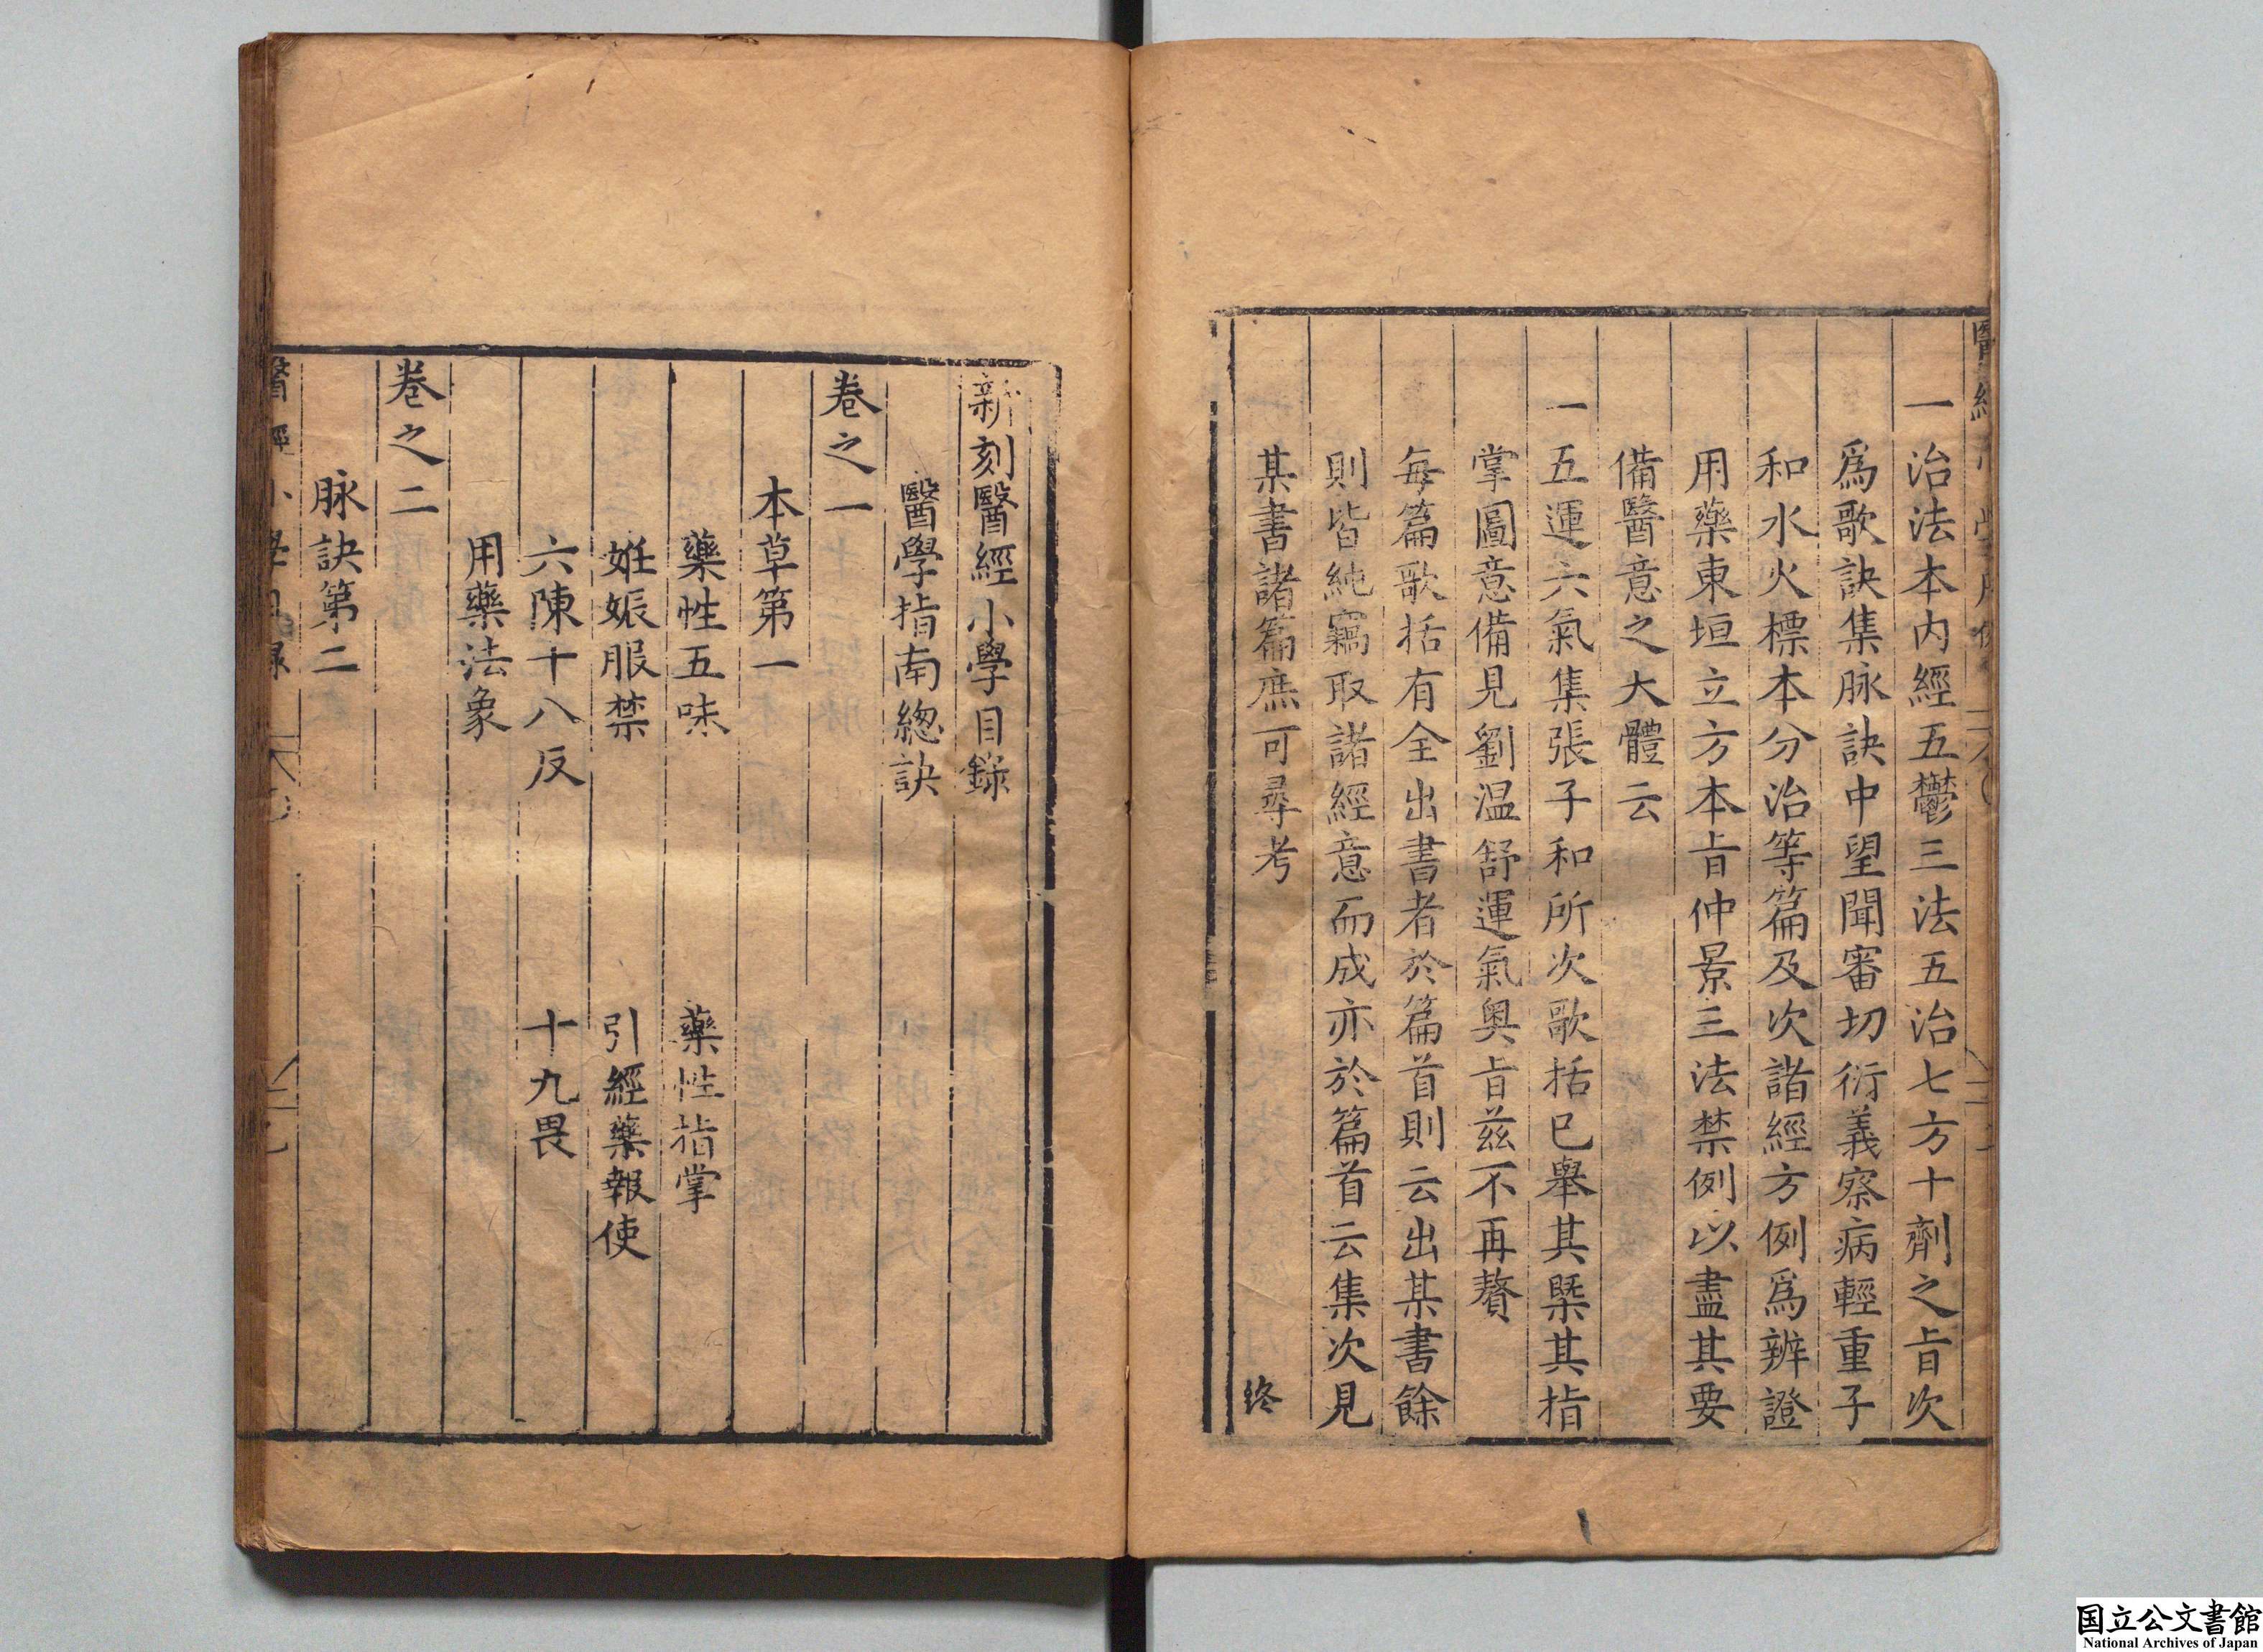 一治法本内經五鬱三法五治七方十劑之旨次
爲歌訣集脉訣中望聞審切衍義察病輕重子
和水火標本分治等篇及次諸經方例爲辨證
用藥東垣立方本旨仲景三法禁例以盡其要
備醫意之大體云
一五運六氣集張子和所次歌括已舉其槩其指
掌圖意備見劉温舒運氣奥旨茲不再贅
每篇歌括有全出書者於篇首則云出某書餘
則皆純竊取諸經意而成亦於篇首云集次見
某書諸篇庶可尋考
終
新刻醫經小學目錄
醫學指南總訣
卷之一
本草第一
藥性五味 藥性指掌
姙娠服禁 引經藥報使
六陳十八反 十九畏
用藥法象
卷之二
脉訣第二
国立公文書館
National Archives of Japan